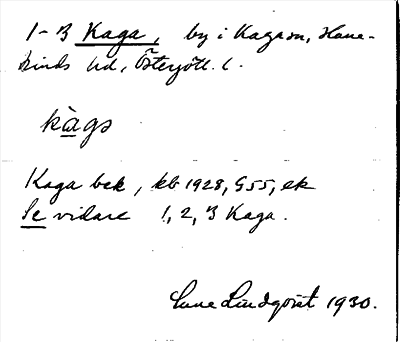 1-3 Kaga, by i Kaga sn, Hane-
kinds hd, Östergötl. l.
kàgs
Kaga bek, kb 1928, G55, ek
Se vidare 1, 2, 3 Kaga.
Sune Lindqvist 1930.